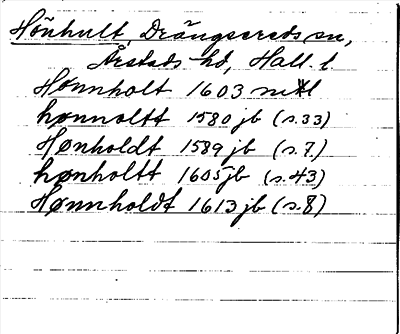 Hönhult, Drängsereds sn,
Årstads hd, Hall. l
Hønnholt 1603 mtl
hønnoltt 1580 jb (s.33)
Hønholdt 1589 jb (s.7)
hønholtt 1605 jb (s.43)
Hønnholdt 1613 jb (s.8)